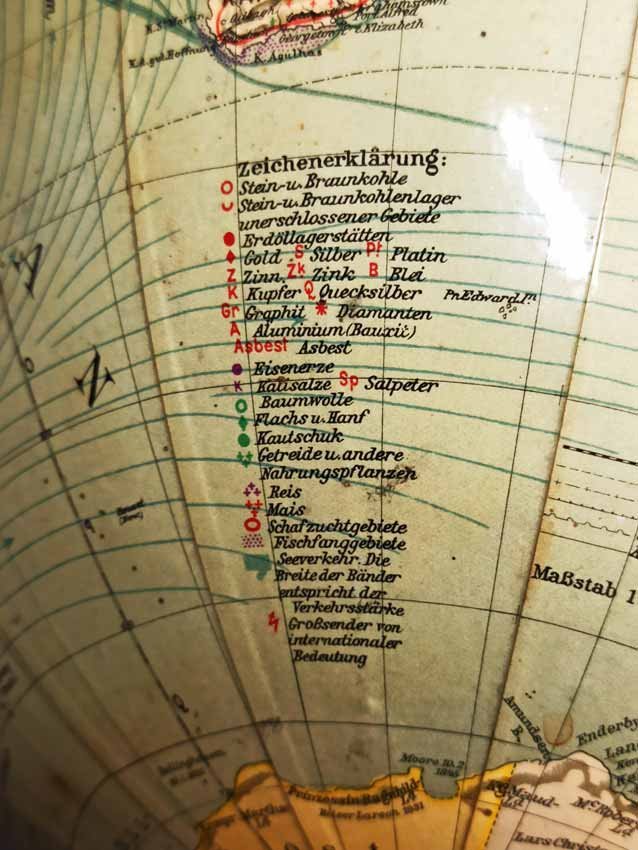 K. Agulhas
Zeichenerklärung:
Stein-u. Braunkohle
Stein-u. Braunkohlenlager
unerschlossener Gebiete
Erdöllagerstätten
Gold S Silber Pt Platin
Z Zinn, Zk Zink B Blei
K Kupfer Q Quecksilber
Pr. Edward I.n
Gr Graphit * Diamanten
A Aluminium (Bauxit)
Asbest Asbest
Eisenerze
K Kalisalze Sp Salpeter
Baumwolle
Flachs u. Hanf
Kautschuk
Getreide u. andere
Nahrungspflanzen
Reis
Mais
Schafzuchtgebiete
Fischfanggebiete
Seeverkehr. Die
Breite der Bänder
entspricht der
Verkehrsstärke
Maßstab 1
Großsender von
internationaler
Bedeutung
Amundsen
B.
Enderby
Lan
Moore 10.2
1845
Prinzessin Ragnhild
Ld
Riiser Larsen 1931
Maud-
Ld
Lars Christ